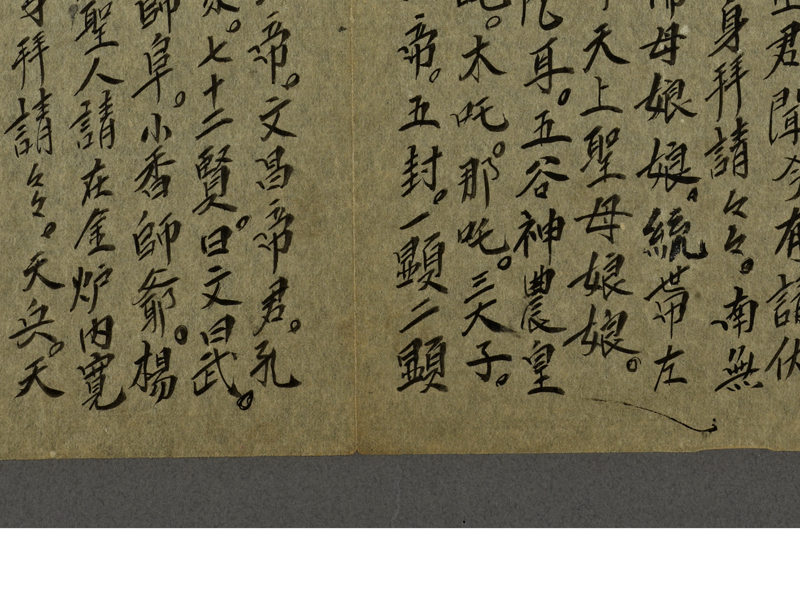 君聞今有請伏
身拜請々々。南無
母娘娘。統帶左
天上聖母娘娘。
耳。五谷神農皇
吒。木吒。那吒。三太子。
帝。五封。一顕二顕
帝。文昌帝君。孔
七十二賢。曰文曰武。
師阜。小香師爺。楊
聖人請在金炉内寬
身拜請々々。天兵。天